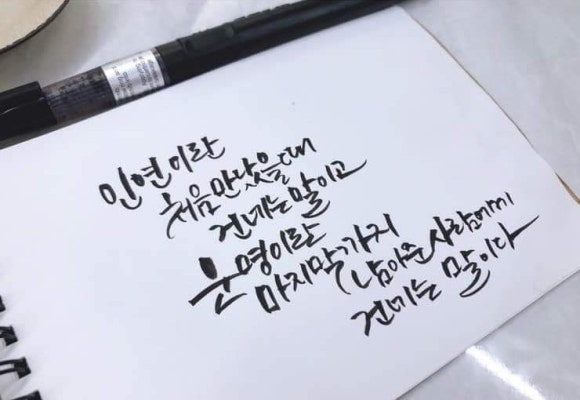 인연이란
처음 만났을 때
건네는 말이고
운명이란
마지막까지
남아준 사람에게
건네는 말이다